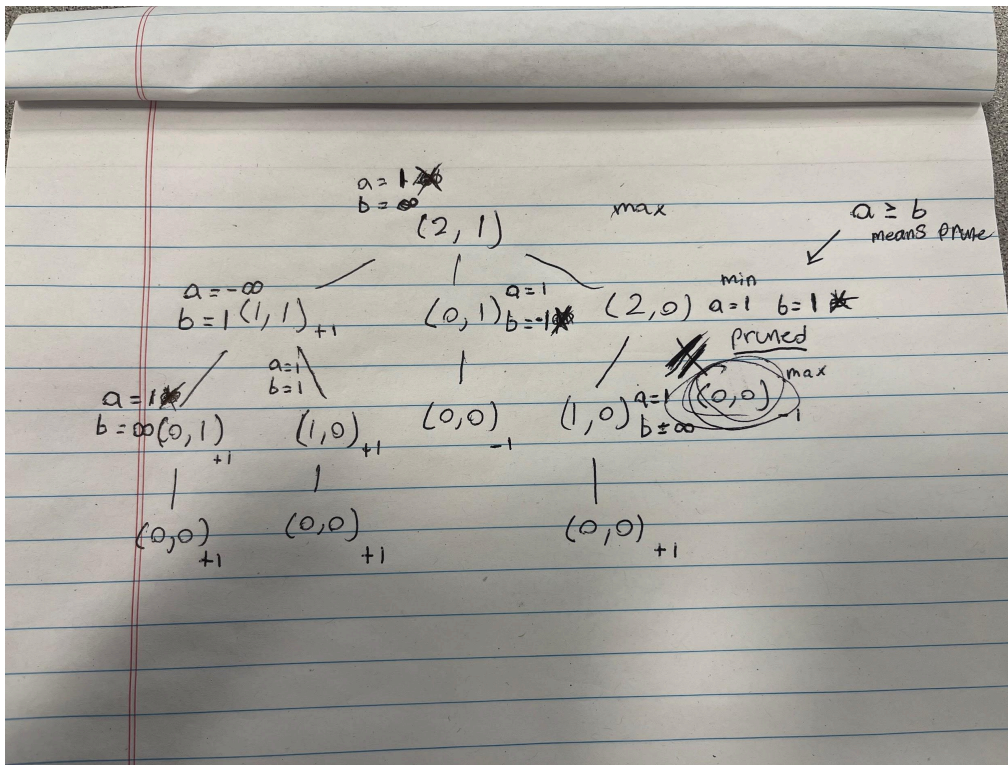 a = 1
b = ∞
(2, 1)
max
a ≥ b
means prune
a = -∞
b = 1 (1, 1) +1
(0, 1)
a = 1
b = -1
(2, 0)
min
a = 1 b = 1
pruned
a = 1
b = 1
a = 1
b = ∞ (0, 1) +1
(1, 0) +1
(0, 0) -1
(1, 0)
a = 1
b = ∞
(0, 0) -1
max
(0, 0) +1
(0, 0) +1
(0, 0) +1